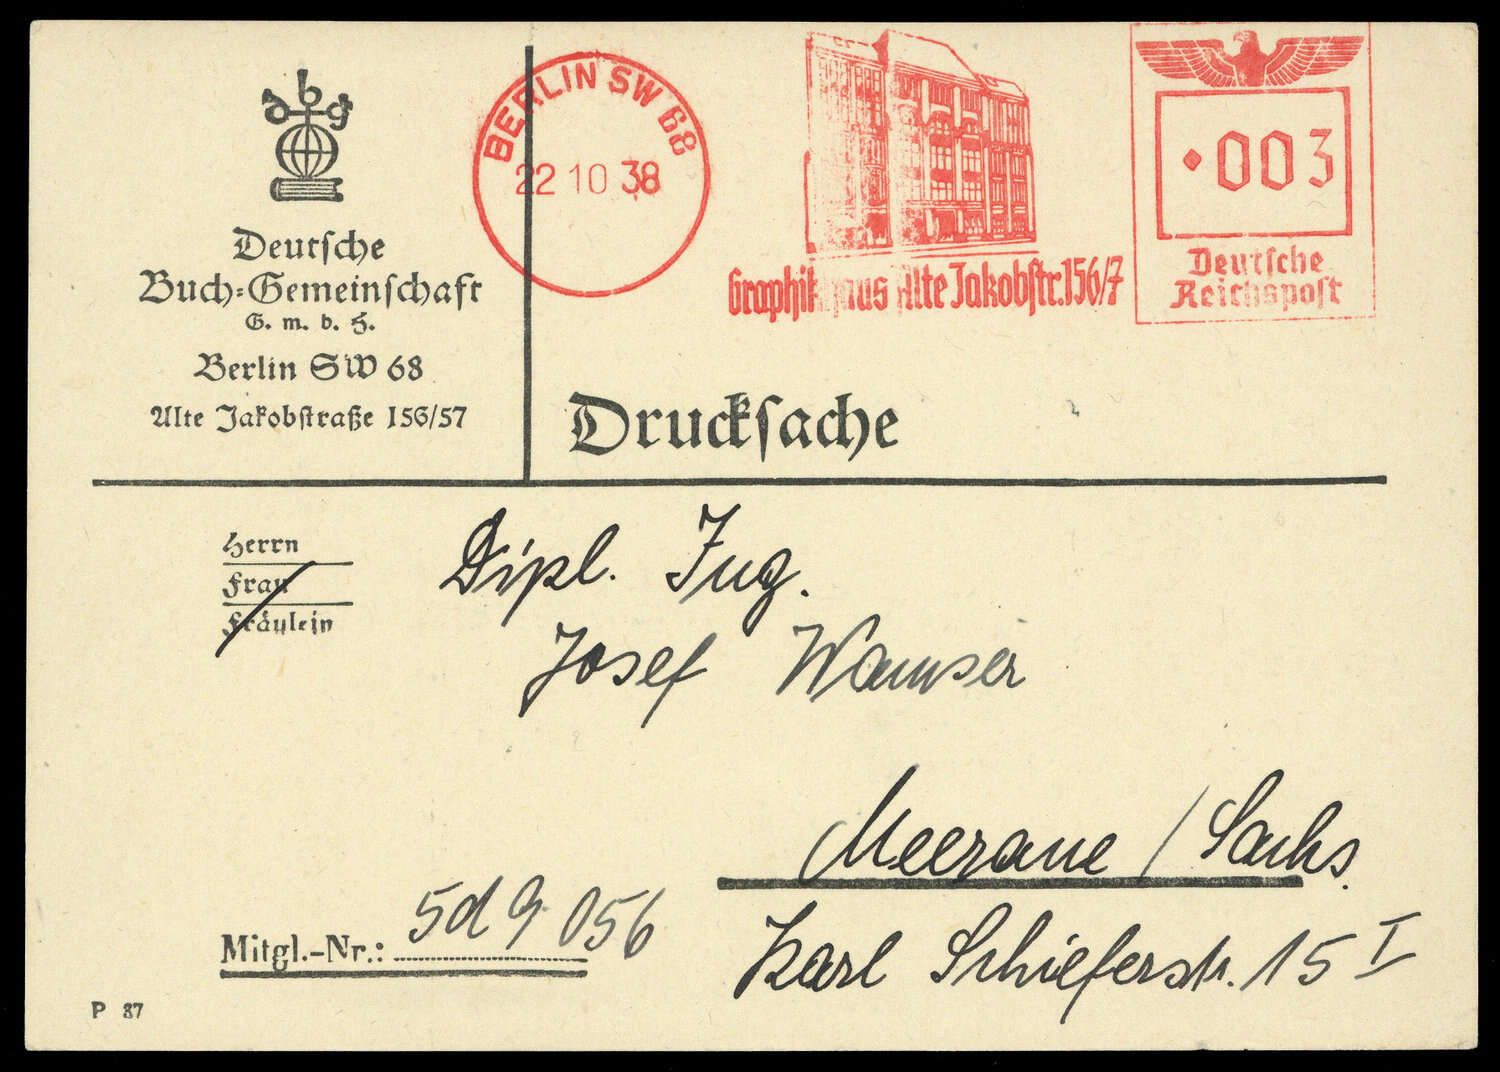 dbg
Deutsche
Buch-Gemeinschaft
G. m. b. H.
Berlin SW 68
Alte Jakobstraße 156/57
BERLIN SW 68
22 10 38
Graphikhaus Alte Jakobstr.156/7
003
Deutsche
Reichspost
Drucksache
Herrn
Frau
Fräulein
Dipl. Ing.
Josef Wamser
Meerane / Sachs.
Karl Schieferstr. 15 I
Mitgl.-Nr.: 5d 9 056
P 37